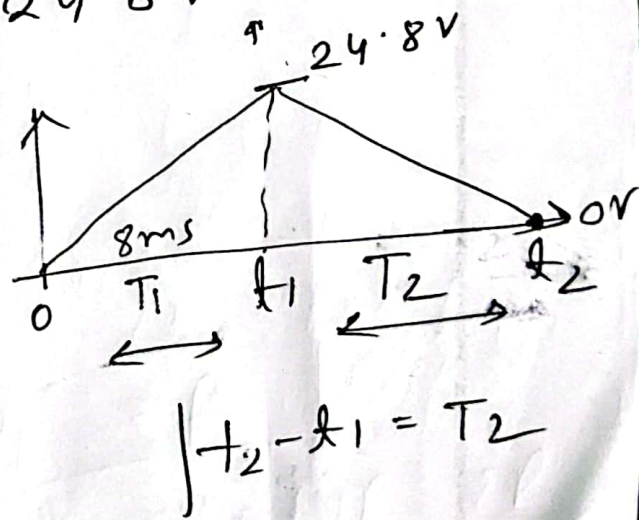 24.8V
0V
8ms
T1 t1 T2 t2
0
t2 - t1 = T2